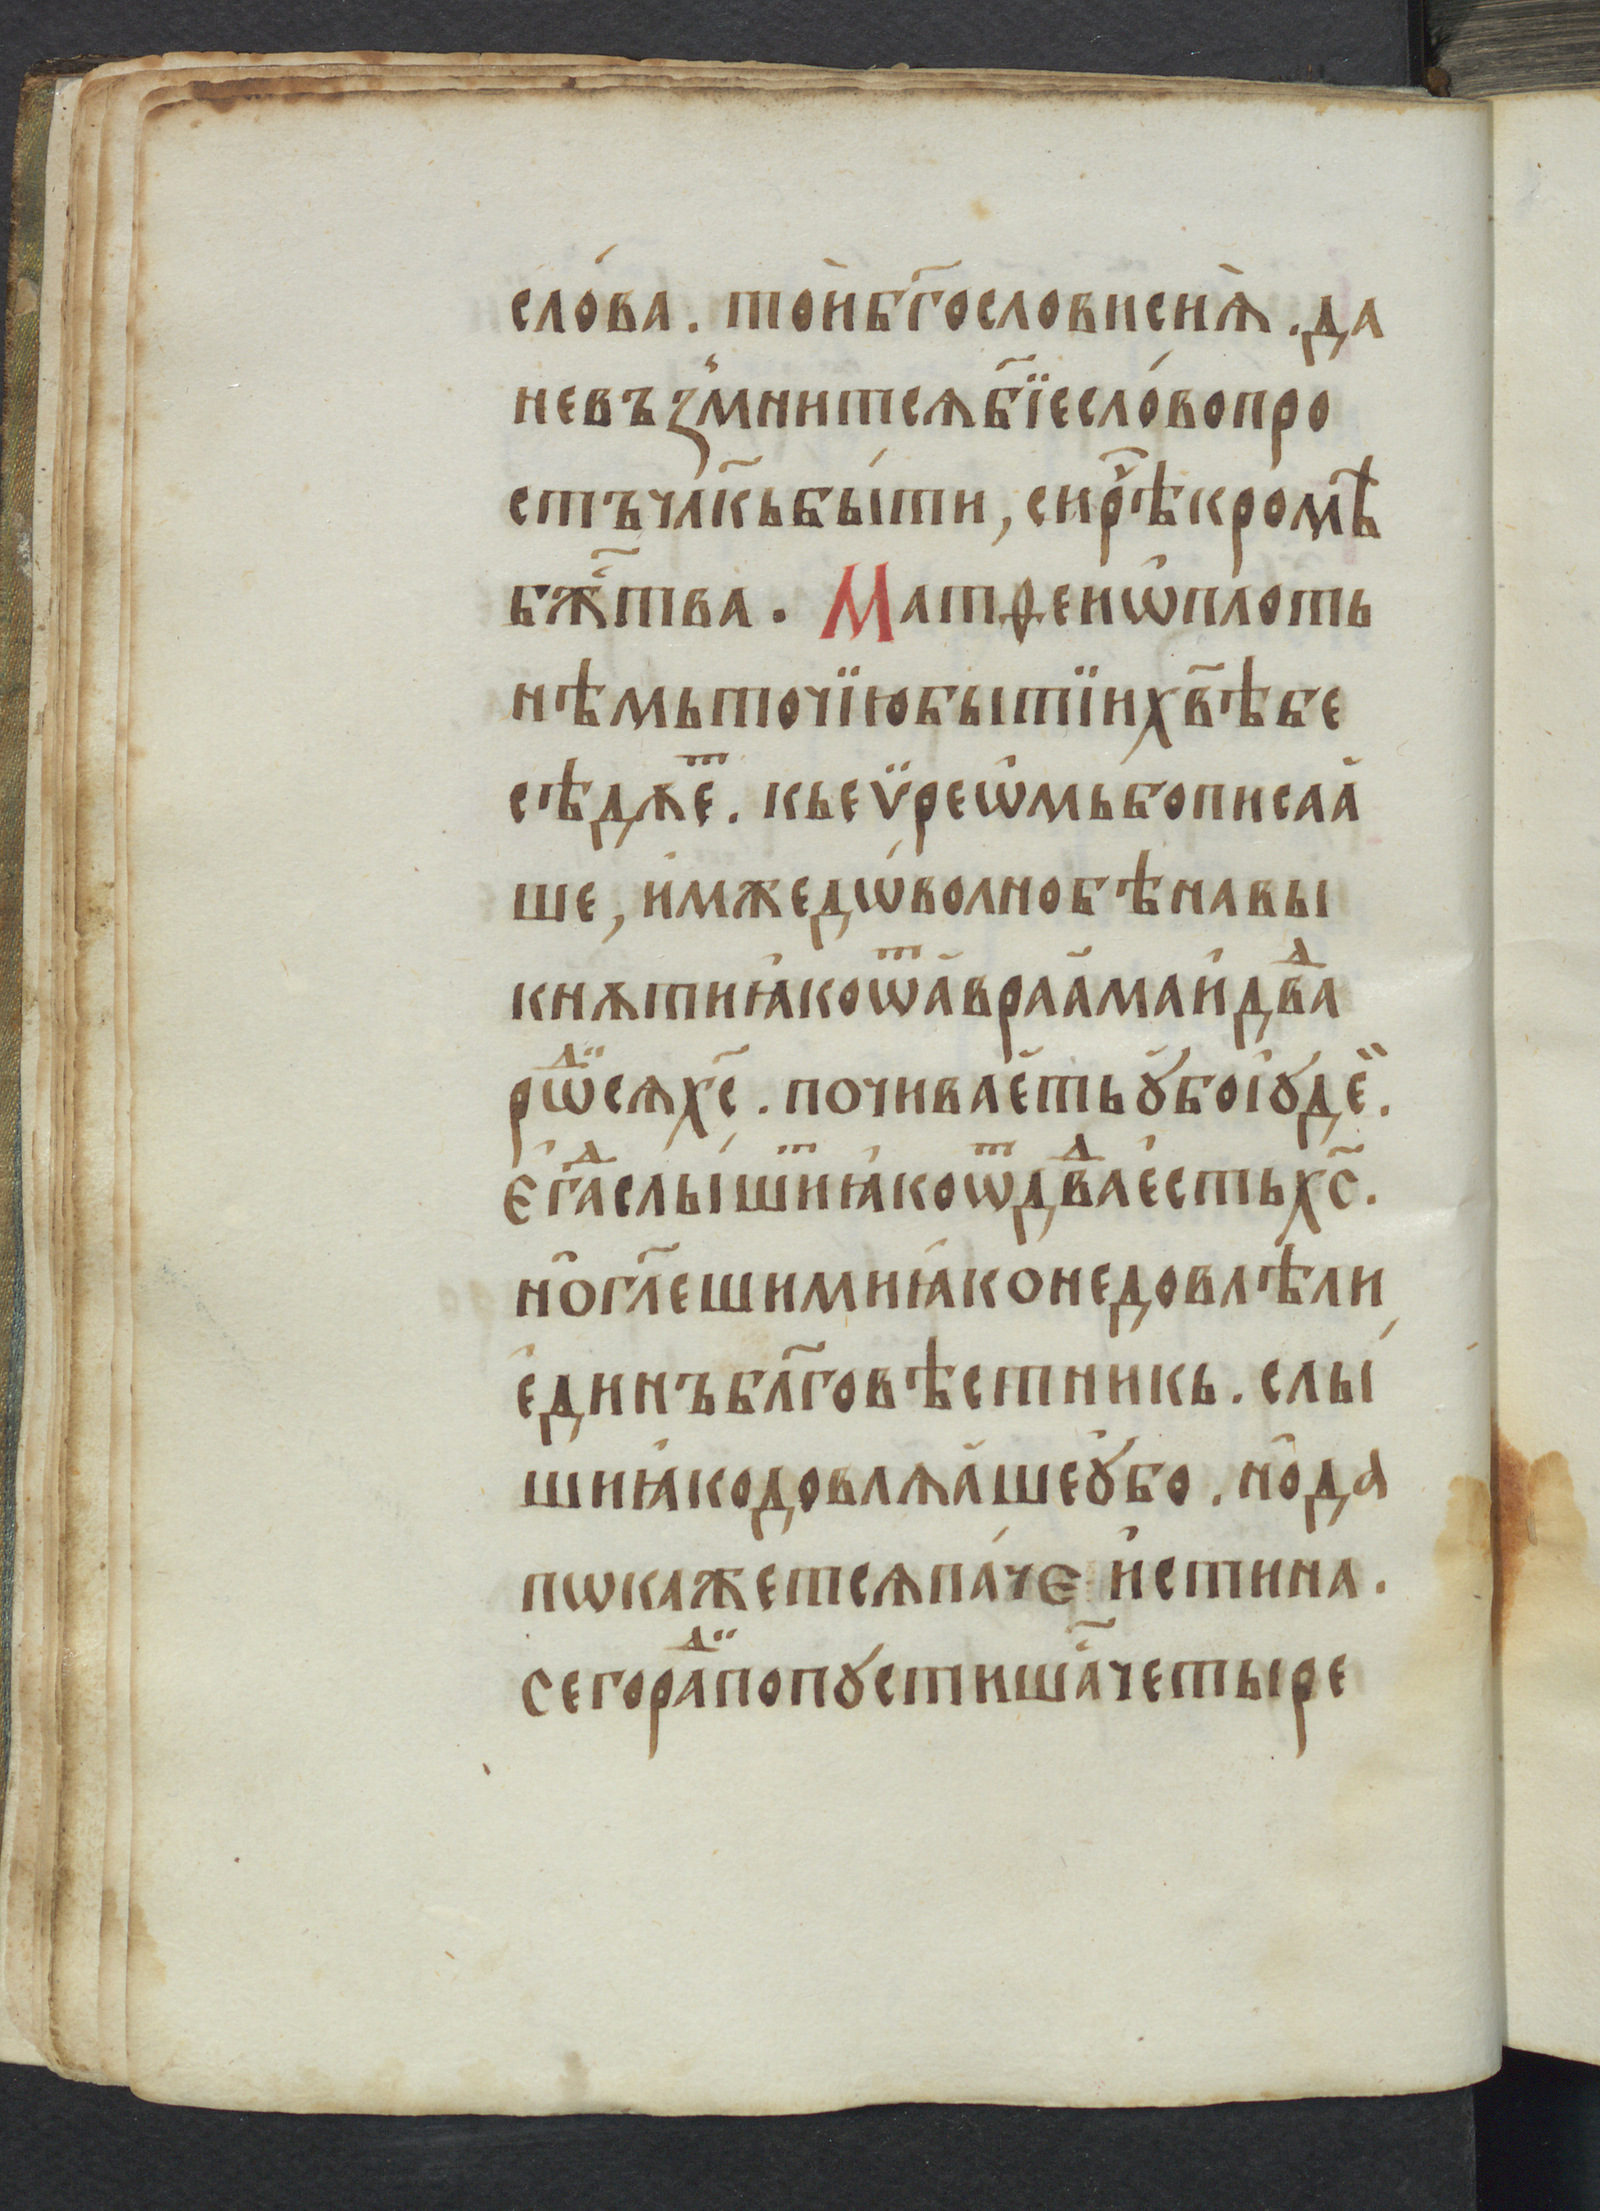 сло́ва. то́и бг҃ословисѧ̀. да
не въз̾мнитсѧ бж҃їе сло́во про
стъ чл҃кь бы́ти, сирⷱ҇ѣ кромѣ̀
бж҇тва. Матѳеи ѡ плоть
нѣмь точїю бытїи хв҃ѣ бе
сѣдѫеⷮ. кь еѵ̈реѡ̑мь бо писаа
ше, и҆мже дѡ́волно бѣ навы
кнѫти ꙗ҆ко ѿ а҆враа҆ма и҆ дв҃ⷣа
рѡⷣи сѧ хс҃. почивае҆ть ꙋ҆бо і҆ꙋде̏.
є҆гⷣа слы́шиⷮ ꙗ҆ко ѿ дв҃ⷣа е҆сть хс҃.
но̑ гл҃еши ми ꙗ҆ко не довлѣ ли
є҆динъ бл҃говѣстникь. слы́
ши ꙗ҆ко довлѧа҆ше ꙋ҆бо. но̑ да
пѡкажетсѧ па́че и҆стина.
Сего раⷣи попꙋстишѧ҃ четыре